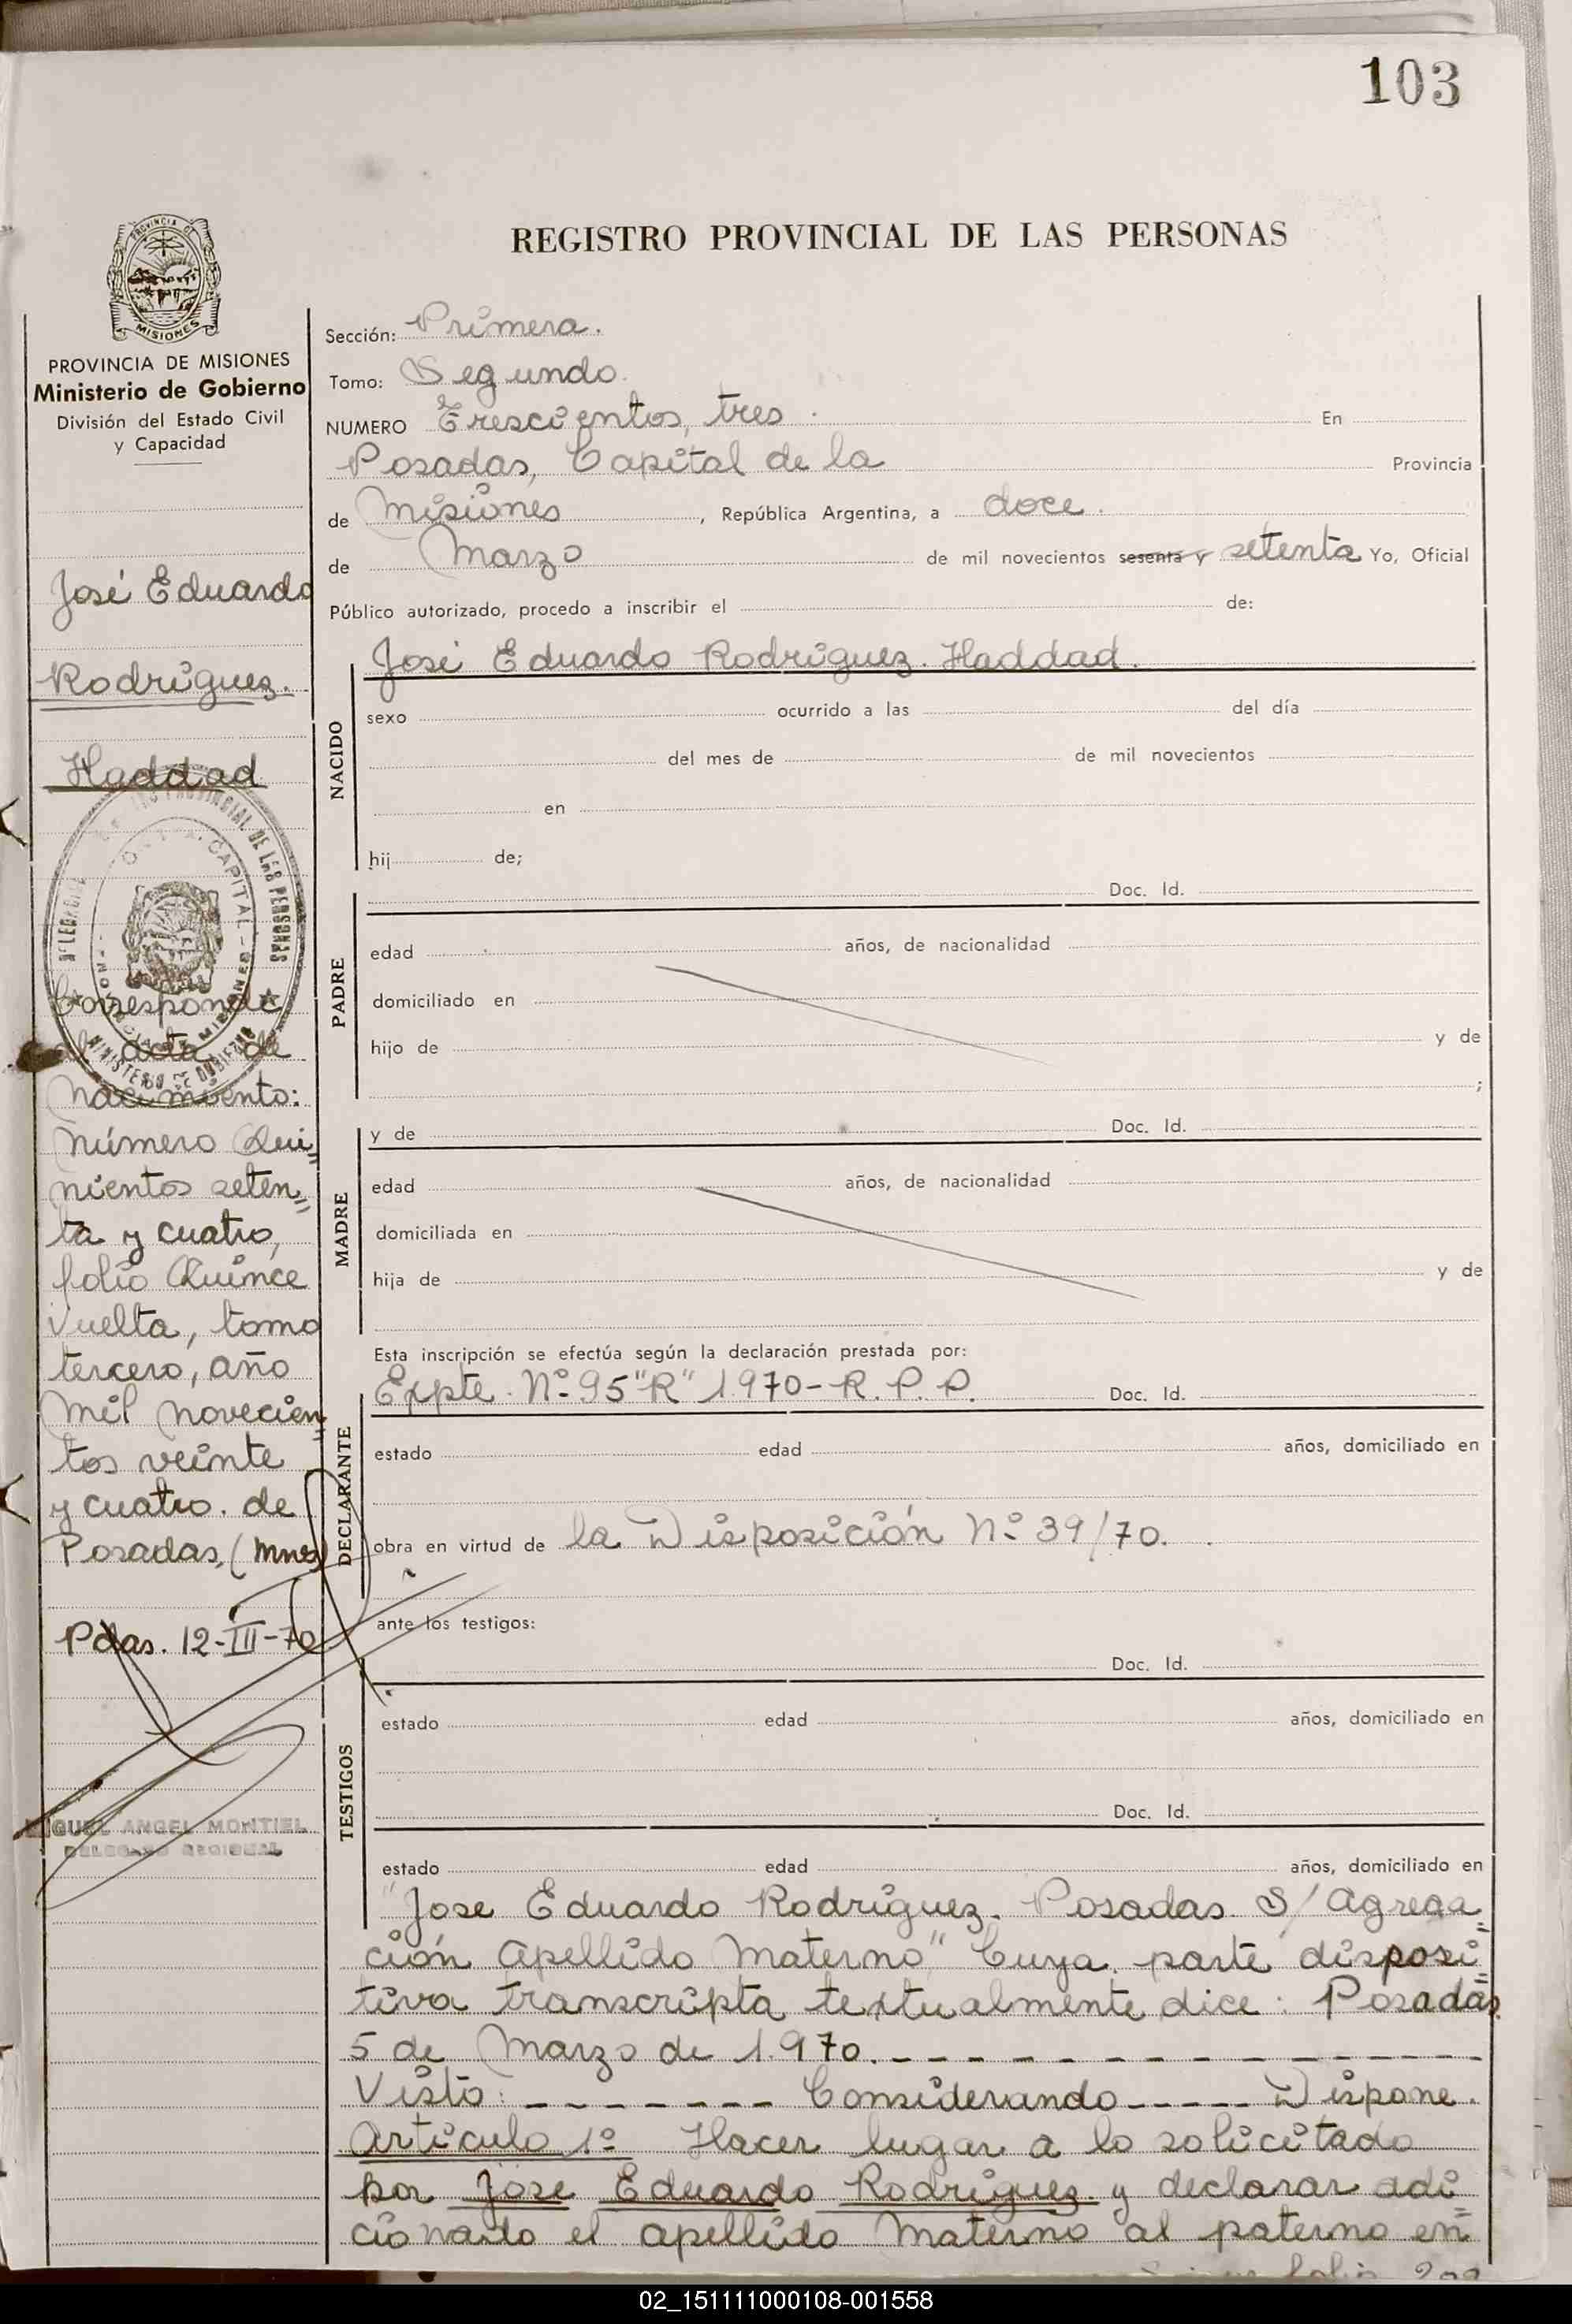 103
REGISTRO PROVINCIAL DE LAS PERSONAS
PROVINCIA DE MISIONES
Ministerio de Gobierno
División del Estado Civil
y Capacidad
José Eduardo
Rodríguez.
Haddad
Corresponde
al acta de
Nacimiento:
Número Qui
nientos seten
ta y cuatro,
folio Quince
Vuelta, tomo
tercero, año
Mil Novecien
tos veinte
y cuatro. de
Posadas, (Mnes)
Pdas. 12-III-70
MIGUEL ANGEL MONTIEL
DELEGADO REGIONAL
Sección: Primera.
Tomo: Segundo.
NUMERO Trescientos, tres. En
Posadas, Capital de la Provincia
de Misiones, República Argentina, a doce.
de Marzo de mil novecientos sesenta y setenta Yo, Oficial
Público autorizado, procedo a inscribir el de:
José Eduardo Rodríguez. Haddad.
NACIDO
sexo ocurrido a las del día
del mes de de mil novecientos
en
hij de;
Doc. Id.
PADRE
edad años, de nacionalidad
domiciliado en
hijo de y de
;
y de Doc. Id.
MADRE
edad años, de nacionalidad
domiciliada en
hija de y de
Esta inscripción se efectúa según la declaración prestada por:
Expte. Nº 95 "R" 1.970 - R. P. P. Doc. Id.
DECLARANTE
estado edad años, domiciliado en
obra en virtud de la Disposición Nº 39/70.
ante los testigos:
Doc. Id.
TESTIGOS
estado edad años, domiciliado en
Doc. Id.
estado edad años, domiciliado en
"Jose Eduardo Rodríguez. Posadas. S/ Agrega
ción Apellido Materno" Cuya parte disposi
tiva transcripta textualmente dice: Posadas,
5 de Marzo de 1.970. - - - - - - - - - - - - -
Visto: - - - - - - - Considerando - - - - - Dispone.
Artículo 1º Hacer lugar a lo solicitado
por Jose Eduardo Rodríguez y declarar adi
cionado el apellido Materno al paterno en
02_151111000108-001558